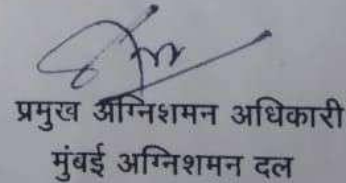 प्रमुख अग्निशमन अधिकारी
मुंबई अग्निशमन दल